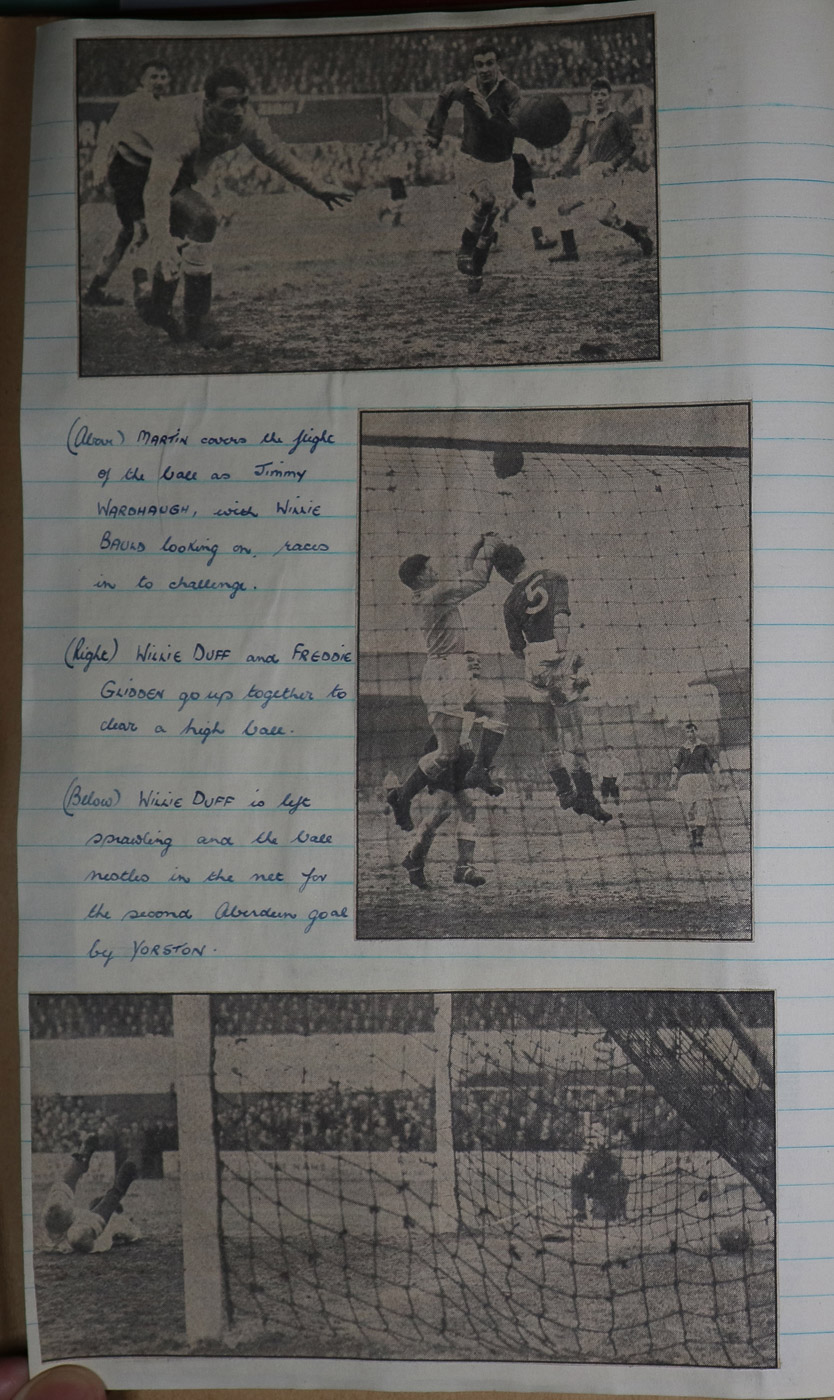 (Above) MARTIN covers the flight
of the ball as Jimmy
WARDHAUGH, with WILLIE
BAULD looking on, races
in to challenge.
(Right) WILLIE DUFF and FREDDIE
GLIDDEN go up together to
clear a high ball.
(Below) WILLIE DUFF is left
sprawling and the ball
nestles in the net for
the second Aberdeen goal
by YORSTON.
5